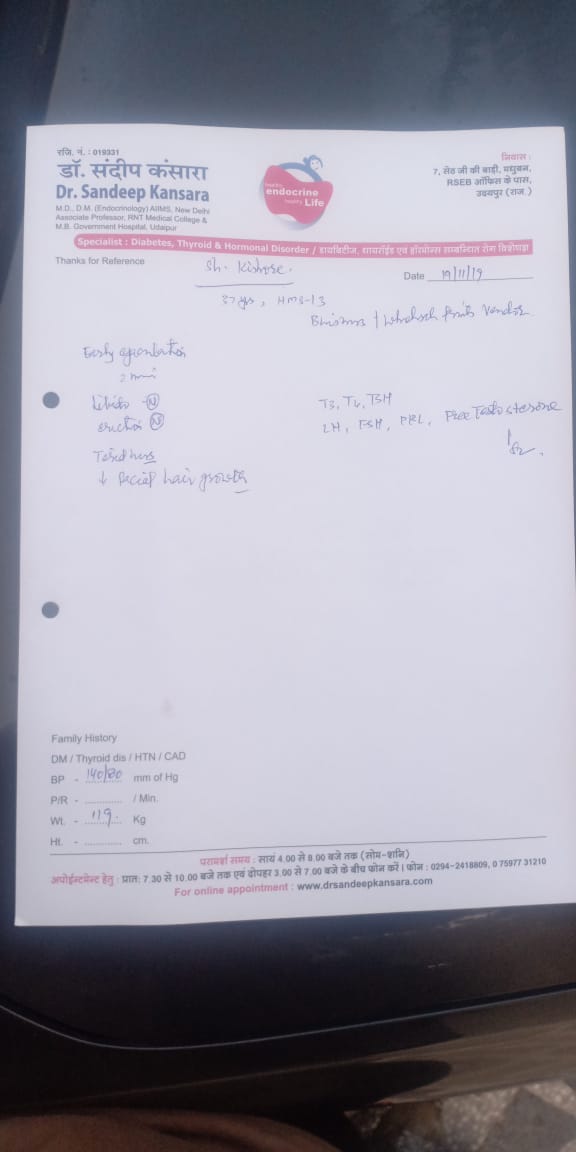 रजि. नं. : 019331
डॉ. संदीप कंसारा
Dr. Sandeep Kansara
M.D., D.M. (Endocrinology) AIIMS, New Delhi
Associate Professor, RNT Medical College &
M.B. Government Hospital, Udaipur
healthy
endocrine
healthy Life
निवास :
7, सेठ जी की बाड़ी, मधुबन,
RSEB ऑफिस के पास,
उदयपुर (राज.)
Specialist : Diabetes, Thyroid & Hormonal Disorder / डायबिटीज, थायरॉईड एवं हॉरमोन्स सम्बन्धित रोग विशेषज्ञ
Thanks for Reference
Sh. Kishore.
Date 19/11/19
37 yrs,
Business / Vendor
Early
2 min
libido - N
erection N
T3, T4, TSH
LH, FSH, PRL, Free Testosterone
↓ facial hair growth
Family History
DM / Thyroid dis / HTN / CAD
BP - 140/80 mm of Hg
P/R - ............ / Min.
Wt. - 119 Kg
Ht. - ............ cm.
परामर्श समय : सायं 4.00 से 8.00 बजे तक (सोम-शनि)
अपोईन्टमेन्ट हेतु : प्रातः 7.30 से 10.00 बजे तक एवं दोपहर 3.00 से 7.00 बजे के बीच फोन करें। फोन : 0294-2418809, 0 75977 31210
For online appointment : www.drsandeepkansara.com